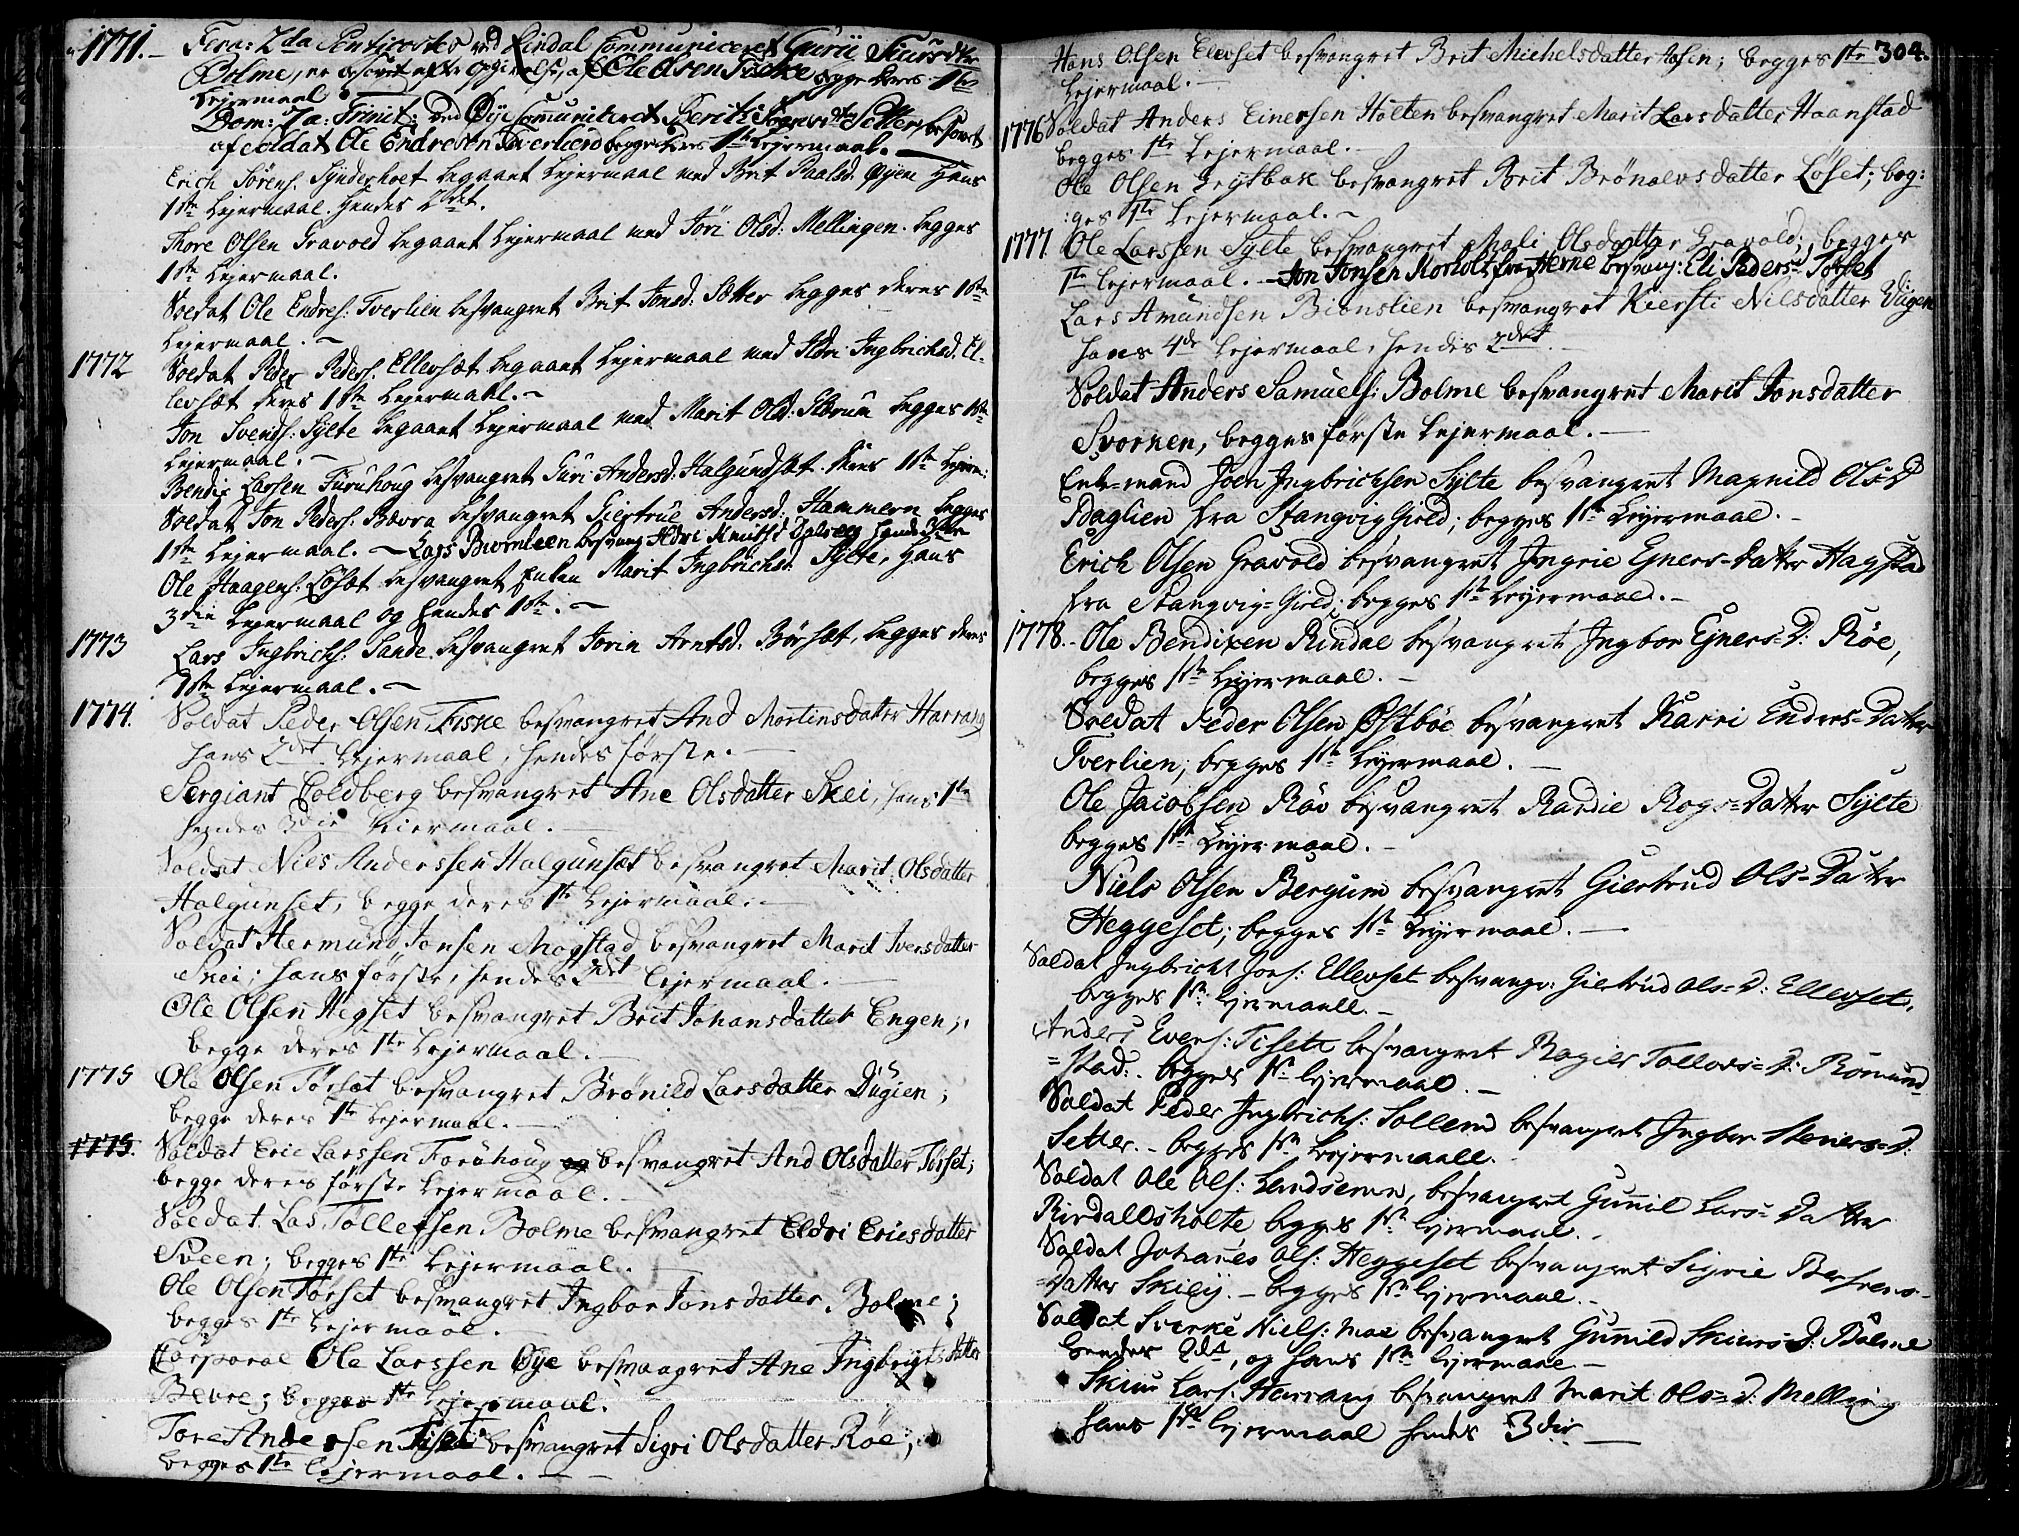 1771. Fera: 2da Penticostes ved Rindal Communiceret Gurii Siursdtr
Bolme, er besovet efter Opgivelse, af Ole Olsen Fiske begge deres 1te
Lejermaal
Dom: 7a: Trinit: ved Øye Communiceret Berit Setter, besovet
af Soldat Ole Endresen Tverlied begge deres 1te Lejermaal.
Erich Sørens. Synderhoet begaaet Lejermaal med Brit Paalsd. Øyen Hans
1te Lejermaal. Hendes 2det.
Thore Olsen Gravold begaaet Lejermaal med Jöri Olsd: Mellingen. begges
1ste Lejermaal.
Soldat Ole Endres: Tverlien besvangret Brit Jonsd: Sætter begges deres 1ste
Lejermaal. -
1772 Soldat Peder Peders. Ellevsæt begaaet Lejermaal med Ildri Ingbrichsd. El-
levsæt deres 1ste Lejermaal. -
Jon Svends: Sylte begaaet Lejermaal med Marit Olsd: Glærum begges 1ste
Lejermaal. -
Bendix Larsen Furuhoug besvangret Guri Andersd: Halgundsæt. deres 1ste Lejerm:
Soldat Jon Peders: Bævra besvangret Giertrue Andersd: Hammern begges
1ste Lejermaal. - Lars Biørnleen besvang Ildri Knutsd
Ole Haagens: Løsæt besvangret Enken Marit Ingbrichsd. Sylte, Hans
3die Lejermaal og Hendes 1ste. -
1773 Lars Ingbrichs: Sande besvangret Jorin Arntsd. Börsæt, begges deres
1ste Lejermaal. -
1774. Soldat Peder Olsen Fiske besvangret And Mortinsdatter Harrang
hans 2det Lejermaal, hendes første.
Sergiant Coldberg besvangret Ane Olsdatter Skei, hans 1te
hendes 3die Leiermaal.
Soldat Niels Anderssen Halgunsæt besvangret Marit Olsdatter
Halgunset, begge deres 1te Lejermaal.
Soldat Hermund Jonsen Mogstad besvangret Marit Iversdatter
Skei; hans første, hendes 2det Lejermaal.
Ole Olsen Hegset besvangret Brit Johansdatter Engen;
begge deres 1te Lejermaal.
1775 Ole Olsen Törsæt besvangret Brönild Larsdatter Dugien;
begge deres 1te Lejermaal.
1775. Soldat Eric Larssen Foruhoug og besvangret And Olsdatter Törset;
begge deres første Lejermaal.
Soldat Las Tollefsen Bolme besvangret Eldri Ericsdatter
Sveen; begges 1te Lejermaal.
Ole Olsen Törset besvangret Ingbor Jonsdatter Bolme;
begges 1te Lejermaal.
Corporal Ole Larssen Øye besvangret Ane Ingbrigtsdatter
Bevre; begges 1te Lejermaal.
Tore Andersen Tiset besvangret Sigri Olsdatter Röe;
begges 1te Lejermaal.
Hans Olsen Elevset besvangret Brit Michelsdatter Aasen; begges 1te 304.
Lejermaal.
1776 Soldat Anders Einersen Holten besvangret Marit Larsdatter Haanstad
begges 1te Lejermaal.
Ole Olsen besvangret Brit Brönelvsdatter Løset; beg:
:ges 1te Lejermaal. -
1777 Ole Larssen Sylte besvangret Mali Olsdatter Gravold; begges
1te Lejermaal. - Jon Jonsen fra Herne besvang: Eli Peders: Törset
Lars Amundsen Biönslien besvangret Kiersti Nilsdatter Dugen
hans 4de Lejermaal, hendes 2det
Soldat Anders Samuels: Bolme besvangret Marit Jonsdatter
Svornen, begges første Lejermaal.
Enke-mand Joen Ingbrichsen Sylte besvangret Magnild Ols-D
Daglien fra Stangvig Gield; begges 1te Leyermaal.
Erich Olsen Gravold besvangret Ingrie Ejners-Datter Hagstad
fra Stangvig-Gield; begges 1te Leyermaal. -
1778. Ole Bendixen Rindal besvangret Ingbor Ejners-D: Röe,
begges 1te Leyermaal. -
Soldat Peder Olsen Østböe besvangret Karri Enders-Datter
Tverlien; begges 1te Leyermaal. -
Ole Jacobsen Röe besvangret Rardie Rogs-Datter Sylte
begges 1te Leyermaal. -
Niels Olsen Bergum besvangret Giertrud Ols-Datter
Heggeset; begges 1te Leyermaal. -
Soldat Ingbricht Jons: Ellevset besvangr: Giertrud Ols-D: Ellevset,
begges 1te Lejermaall. -
Anders Evens: Tisett besvangret Tollevs-D: Römund
=stad: begges 1te Lejermaal. -
Soldat Peder Ingbrichs: Sollem besvangret Ingbor Steners-D:
Setter. - begges 1te Leyermaall.
Soldat Ole Ols: Landsemn, besvangret Gunil Lars-Datter
Rindallsholte begges 1te Lejermaal. -
Soldat Johanes Ols: Heggeset besvangret Sigrie
=Datter Skiley. - begges 1te Lejermaal. -
Soldat Niels: Moe besvangret Gunild Skiurs-D: Bolme
hendes 2det, og hans 1te Lejermaal -
Skiur Lars: Harrang besvangret Marit Ols-D: Melling
hans 1te Lejermaal hendes 3die